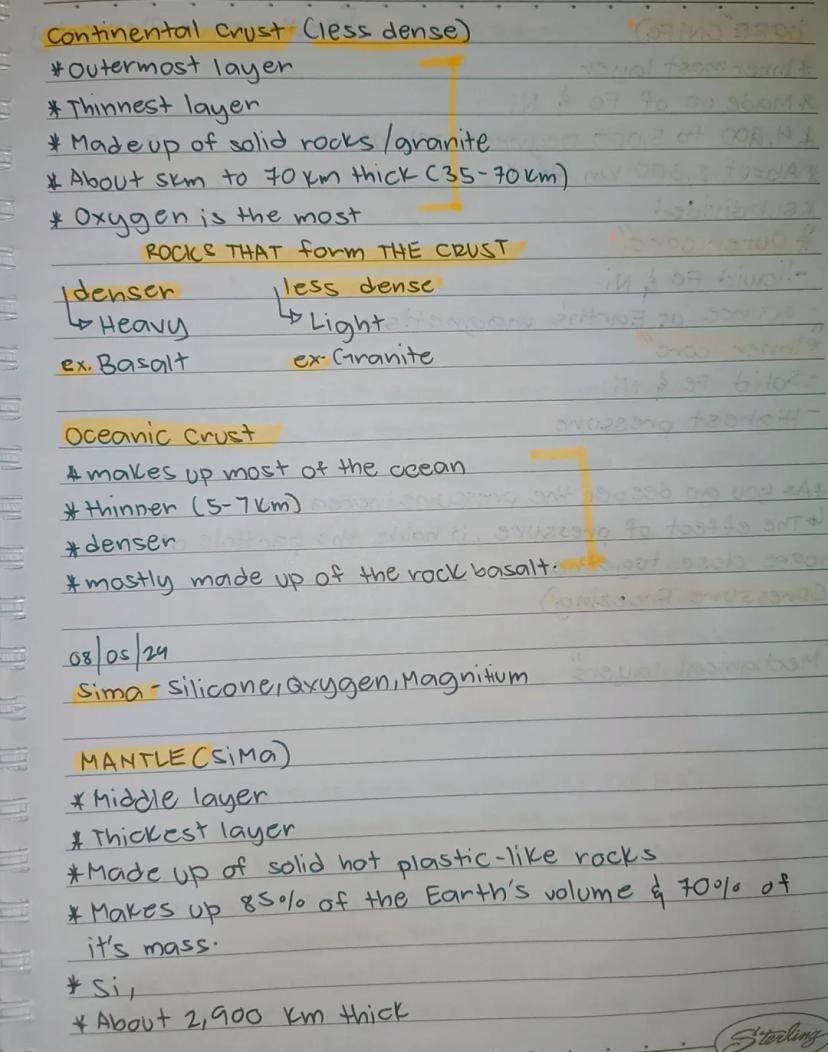 Continental Crust (less dense)
* Outermost layer
* Thinnest layer
* Made up of solid rocks/granite
* About 5km to 70 km thick (35-70km)
* Oxygen is the most
ROCKS THAT form THE CRUST
denser less dense
↳ Heavy ↳ Light
ex. Basalt ex. Granite
Oceanic Crust
* makes up most of the ocean
* thinner (5-7km)
* denser
* mostly made up of the rock basalt.
08/05/24
Sima - Silicone, Oxygen, Magnitium
MANTLE (SiMa)
* Middle layer
* Thickest layer
* Made up of solid hot plastic-like rocks
* Makes up 85% of the Earth's volume & 70% of
it's mass.
* Si,
* About 2,900 km thick
Sterling